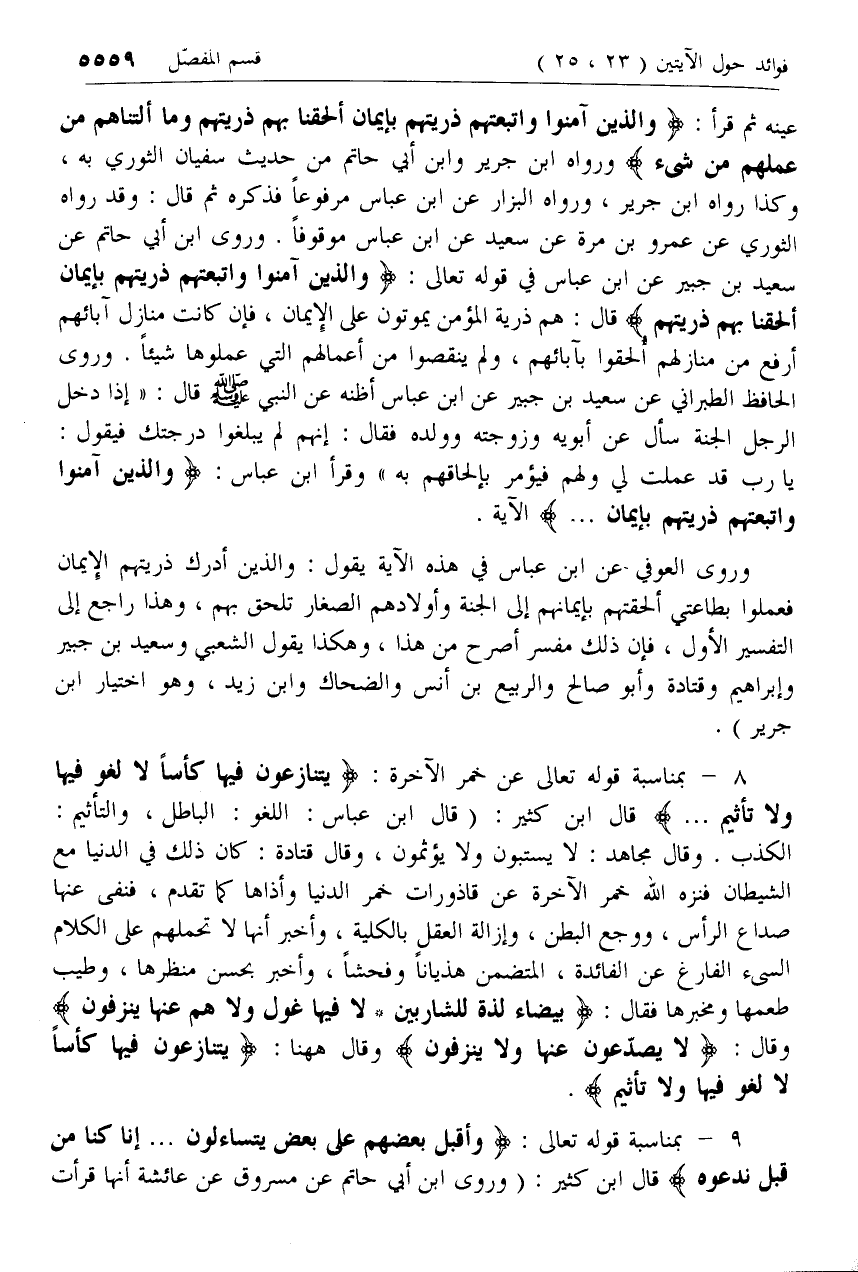 فوائد حول الآيتين ( ٢٣ ، ٢٥ ) قسم المفصّل ٥٥٥٩
عينه ثم قرأ : ﴿ والذين آمنوا واتبعتهم ذريتهم بإيمان ألحقنا بهم ذريتهم وما ألتناهم من
عملهم من شىء ﴾ ورواه ابن جرير وابن أبي حاتم من حديث سفيان الثوري به ،
وكذا رواه ابن جرير ، ورواه البزار عن ابن عباس مرفوعاً فذكره ثم قال : وقد رواه
الثوري عن عمرو بن مرة عن سعيد عن ابن عباس موقوفاً . وروى ابن أبي حاتم عن
سعيد بن جبير عن ابن عباس في قوله تعالى : ﴿ والذين آمنوا واتبعتهم ذريتهم بإيمان
ألحقنا بهم ذريتهم ﴾ قال : هم ذرية المؤمن يموتون على الإيمان ، فإن كانت منازل آبائهم
أرفع من منازلهم أُلحقوا بآبائهم ، ولم ينقصوا من أعمالهم التي عملوها شيئاً . وروى
الحافظ الطبراني عن سعيد بن جبير عن ابن عباس أظنه عن النبي ﷺ قال : « إذا دخل
الرجل الجنة سأل عن أبويه وزوجته وولده فقال : إنهم لم يبلغوا درجتك فيقول :
يا رب قد عملت لي ولهم فيؤمر بإلحاقهم به » وقرأ ابن عباس : ﴿ والذين آمنوا
واتبعتهم ذريتهم بإيمان ... ﴾ الآية .
وروى العوفي عن ابن عباس في هذه الآية يقول : والذين أدرك ذريتهم الإيمان
فعملوا بطاعتي ألحقتهم بإيمانهم إلى الجنة وأولادهم الصغار تلحق بهم ، وهذا راجع إلى
التفسير الأول ، فإن ذلك مفسر أصرح من هذا ، وهكذا يقول الشعبي وسعيد بن جبير
وإبراهيم وقتادة وأبو صالح والربيع بن أنس والضحاك وابن زيد ، وهو اختيار ابن
جرير ) .
٨ - بمناسبة قوله تعالى عن خمر الآخرة : ﴿ يتنازعون فيها كأساً لا لغو فيها
ولا تأثيم ... ﴾ قال ابن كثير : ( قال ابن عباس : اللغو : الباطل ، والتأثيم :
الكذب . وقال مجاهد : لا يستبون ولا يؤثمون ، وقال قتادة : كان ذلك في الدنيا مع
الشيطان فنزه الله خمر الآخرة عن قاذورات خمر الدنيا وأذاها كما تقدم ، فنفى عنها
صداع الرأس ، ووجع البطن ، وإزالة العقل بالكلية ، وأخبر أنها لا تحملهم على الكلام
السيء الفارغ عن الفائدة ، المتضمن هذياناً وفحشاً ، وأخبر بحسن منظرها ، وطيب
طعمها ومخبرها فقال : ﴿ بيضاء لذة للشاربين * لا فيها غول ولا هم عنها ينزفون ﴾
وقال : ﴿ لا يصدّعون عنها ولا ينزفون ﴾ وقال ههنا : ﴿ يتنازعون فيها كأساً
لا لغو فيها ولا تأثيم ﴾ .
٩ - بمناسبة قوله تعالى : ﴿ وأقبل بعضهم على بعض يتساءلون ... إنا كنا من
قبل ندعوه ﴾ قال ابن كثير : ( وروى ابن أبي حاتم عن مسروق عن عائشة أنها قرأت